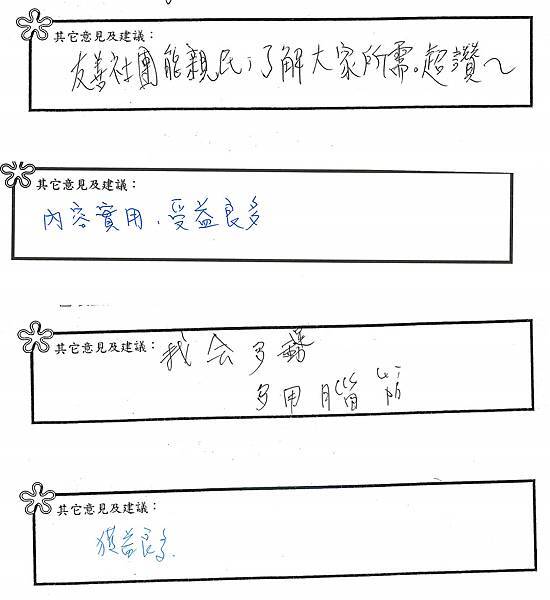 其它意見及建議：
友善社團能親民，了解大家所需。超讚～
其它意見及建議：
內容實用、受益良多
其它意見及建議：
我会多
多用腦筋
其它意見及建議：
獲益良多.